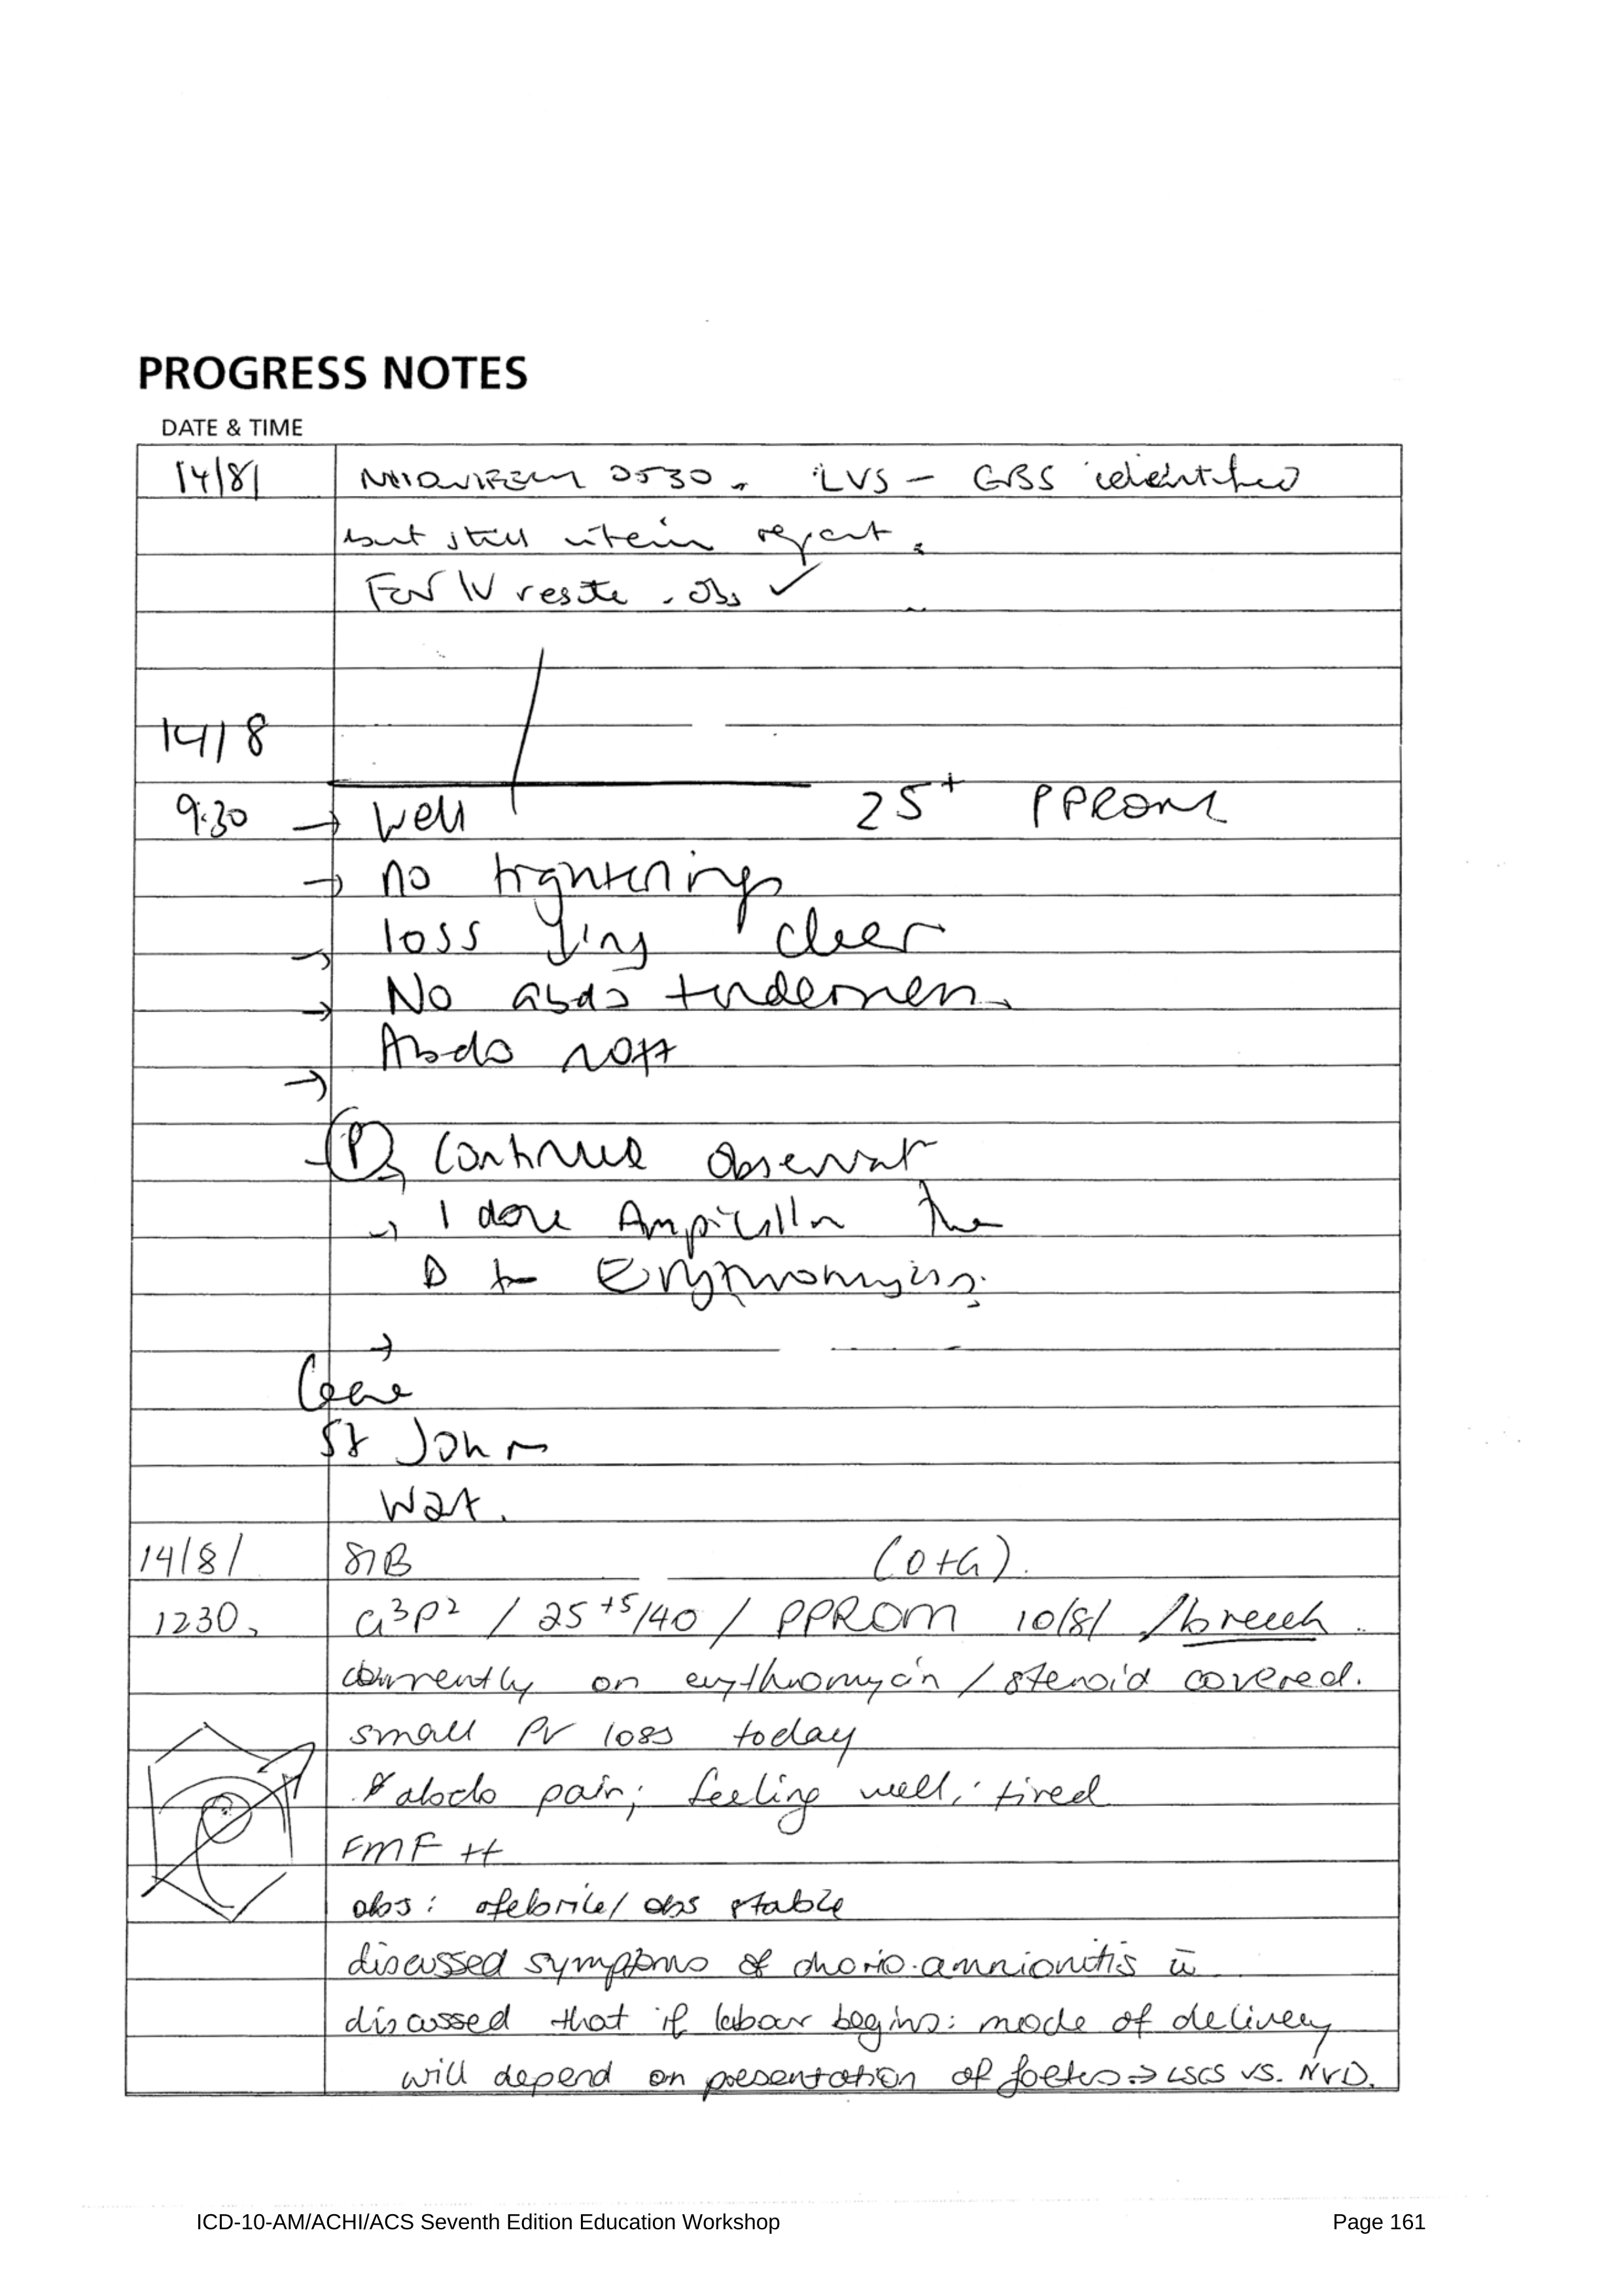 PROGRESS NOTES
DATE & TIME
14/8/ MIDWIFERY 0530. LVS - GBS identified
but still interim report.
For IV resite. Obs ✓
14/8
9:30 → Well 25+ PPROM
→ no tightenings
→ loss clear
→ No abdo tenderness
Abdo soft
→
(P) Continue observat
→ 1 dose Ampicillin then
to Erythromycin.
→
St John
14/8/ S/B (O+G).
1230. G3P2 / 25+5/40 / PPROM 10/8/ /breech.
currently on erythromycin / steroid covered.
small PV loss today
abdo pain; feeling well, tired
FMF ++
obs: afebrile/ obs stable
discussed symptoms of chorio-amnionitis c̄
discussed that if labour begins: mode of delivery
will depend on presentation of foetus → LSCS vs. NVD.
ICD-10-AM/ACHI/ACS Seventh Edition Education Workshop Page 161